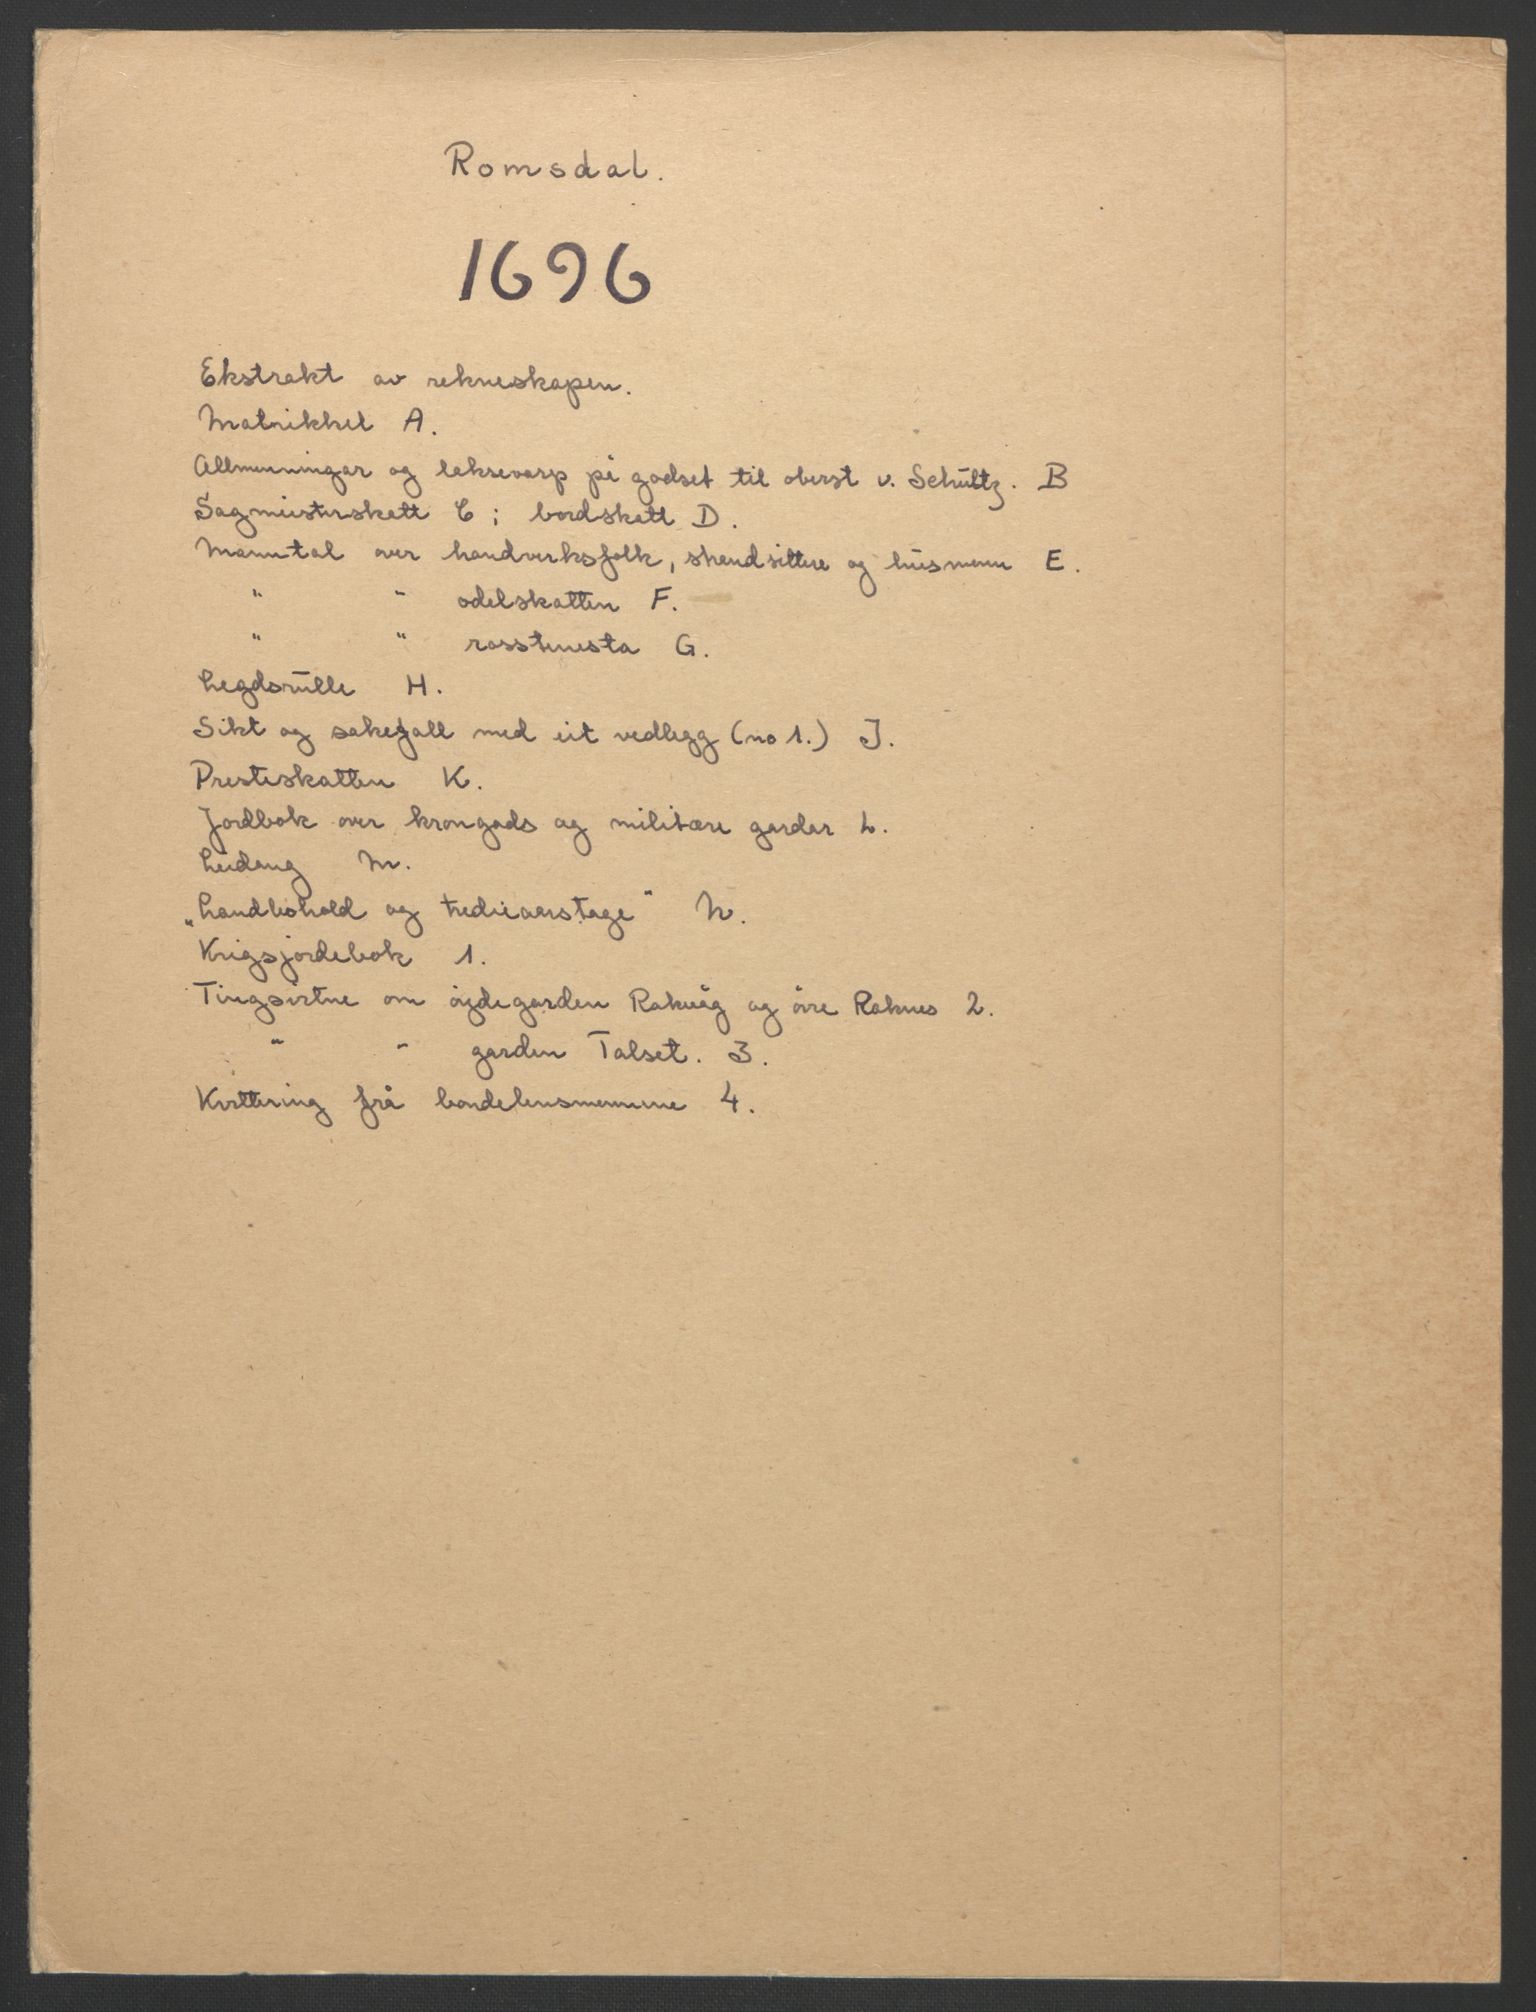 Romsdal.
1696
Ekstrakt av rekneskapen.
Matrikkel A.
Allmenningar og laksevarp på godset til oberst v. Schultz. B
Sagmeisterskatt C; bordskatt D.
Manntal over handverksfolk, strandsittere og husmenn E.
" " odelskatten F.
" " rosstenesta G.
Legdsrulle H.
Sikt og sakefall med eit vedlegg (no 1.) J.
Presteskatten K.
Jordbok over krongods og militære gardar L.
Leidang M.
„Landbohold og trediearstage" N.
Krigsjordebok 1.
Tingsvitne om øydegarden Rakvåg og øvre Raknes 2.
" " garden Talset. 3.
Kvittering frå bondelensmennene 4.